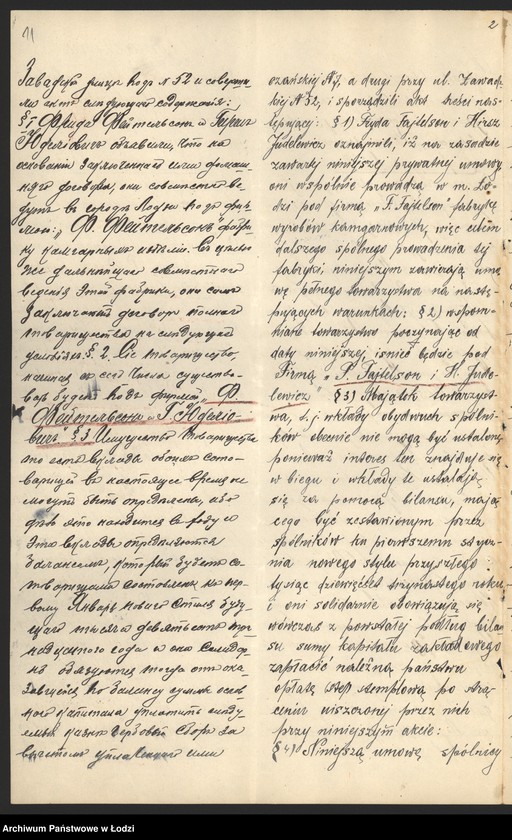 11
Завадской улицѣ подъ N 52 и соверши-
ли актъ слѣдующаго содержанія:
§ 1 Фрида Файтельсонъ и Гиршъ
Юделевичъ объявили, что на
основаніи заключеннаго ими домаш-
няго договора, они совмѣстно ве-
дутъ въ городѣ Лодзи подъ фир-
мою: „Ф. Файтельсонъ" фабри-
ку камгарныхъ издѣлій. Съ цѣлью
же дальнѣйшаго совмѣстнаго
веденія этой фабрики, они симъ
заключаютъ договоръ полнаго
товарищества на слѣдующихъ
условіяхъ. § 2. Сіе товарищество,
начиная съ сего числа существо-
вать будетъ подъ фирмою „Ф.
Файтельсонъ и Г. Юделе-
вичъ" § 3 Имущество товарищества
то есть вклады обоихъ това-
рищей въ настоящее время не
могутъ быть опредѣлены, ибо
дѣло это находится въ ходу и
эти вклады опредѣляются
балансомъ, который будетъ
товарищами составленъ къ пер-
вому Января новаго стиля буду-
щаго тысяча девятьсотъ три-
надцатаго года и они солидар-
но обязуются тогда отъ ока-
завшейся по балансу суммы основ-
ного капитала уплатить слѣду-
емый казнѣ гербовый сборъ за
вычетомъ уплаченнаго ими
2
ozańskiej N 7, a drugi przy ul. Zawadz-
kiej N 52, i sporządzili akt treści nas-
tępującej: § 1) Fryda Fajtelson i Hirsz
Judelewicz oznajmili, iż na zasadzie
zawartej niniejszej prywatnej umowy
oni wspólnie prowadzą w m. Ło-
dzi pod firmą „F. Fajtelson" fabrykę
wyrobów kamgarnowych, więc celem
dalszego spólnego prowadzenia tej
fabryki, niniejszym zawierają umo
wę pełnego towarzystwa na nastę-
pujących warunkach: § 2) wspom-
niane towarzystwo poczynając od
daty niniejszej istnieć będzie pod
Firmą „F. Fajtelson i H. Jude-
lewicz" § 3) Majątek towarzyst-
wa, t. j. wkłady obydwuch spólni-
ków obecnie nie mogą być ustalone
ponieważ interes ten znajduje się
w biegu i wkłady te ustalają
się za pomocą bilansu, mają
cego być zestawionym przez
spólników na pierwszemu stycz-
nia nowego stylu przyszłego
tysiąc dziewięćset trzynastego roku
i oni solidarnie obowiązują się
wówczas z powstałej podług bilan
su sumy kapitału zakładowego
zapłacić należną państwu
opłatę stop stemplową po strą-
ceniu uiszczonej przez nich
przy niniejszym akcie:
§ 4) Niniejszą umowę spólnicy
Archiwum Państwowe w Łodzi